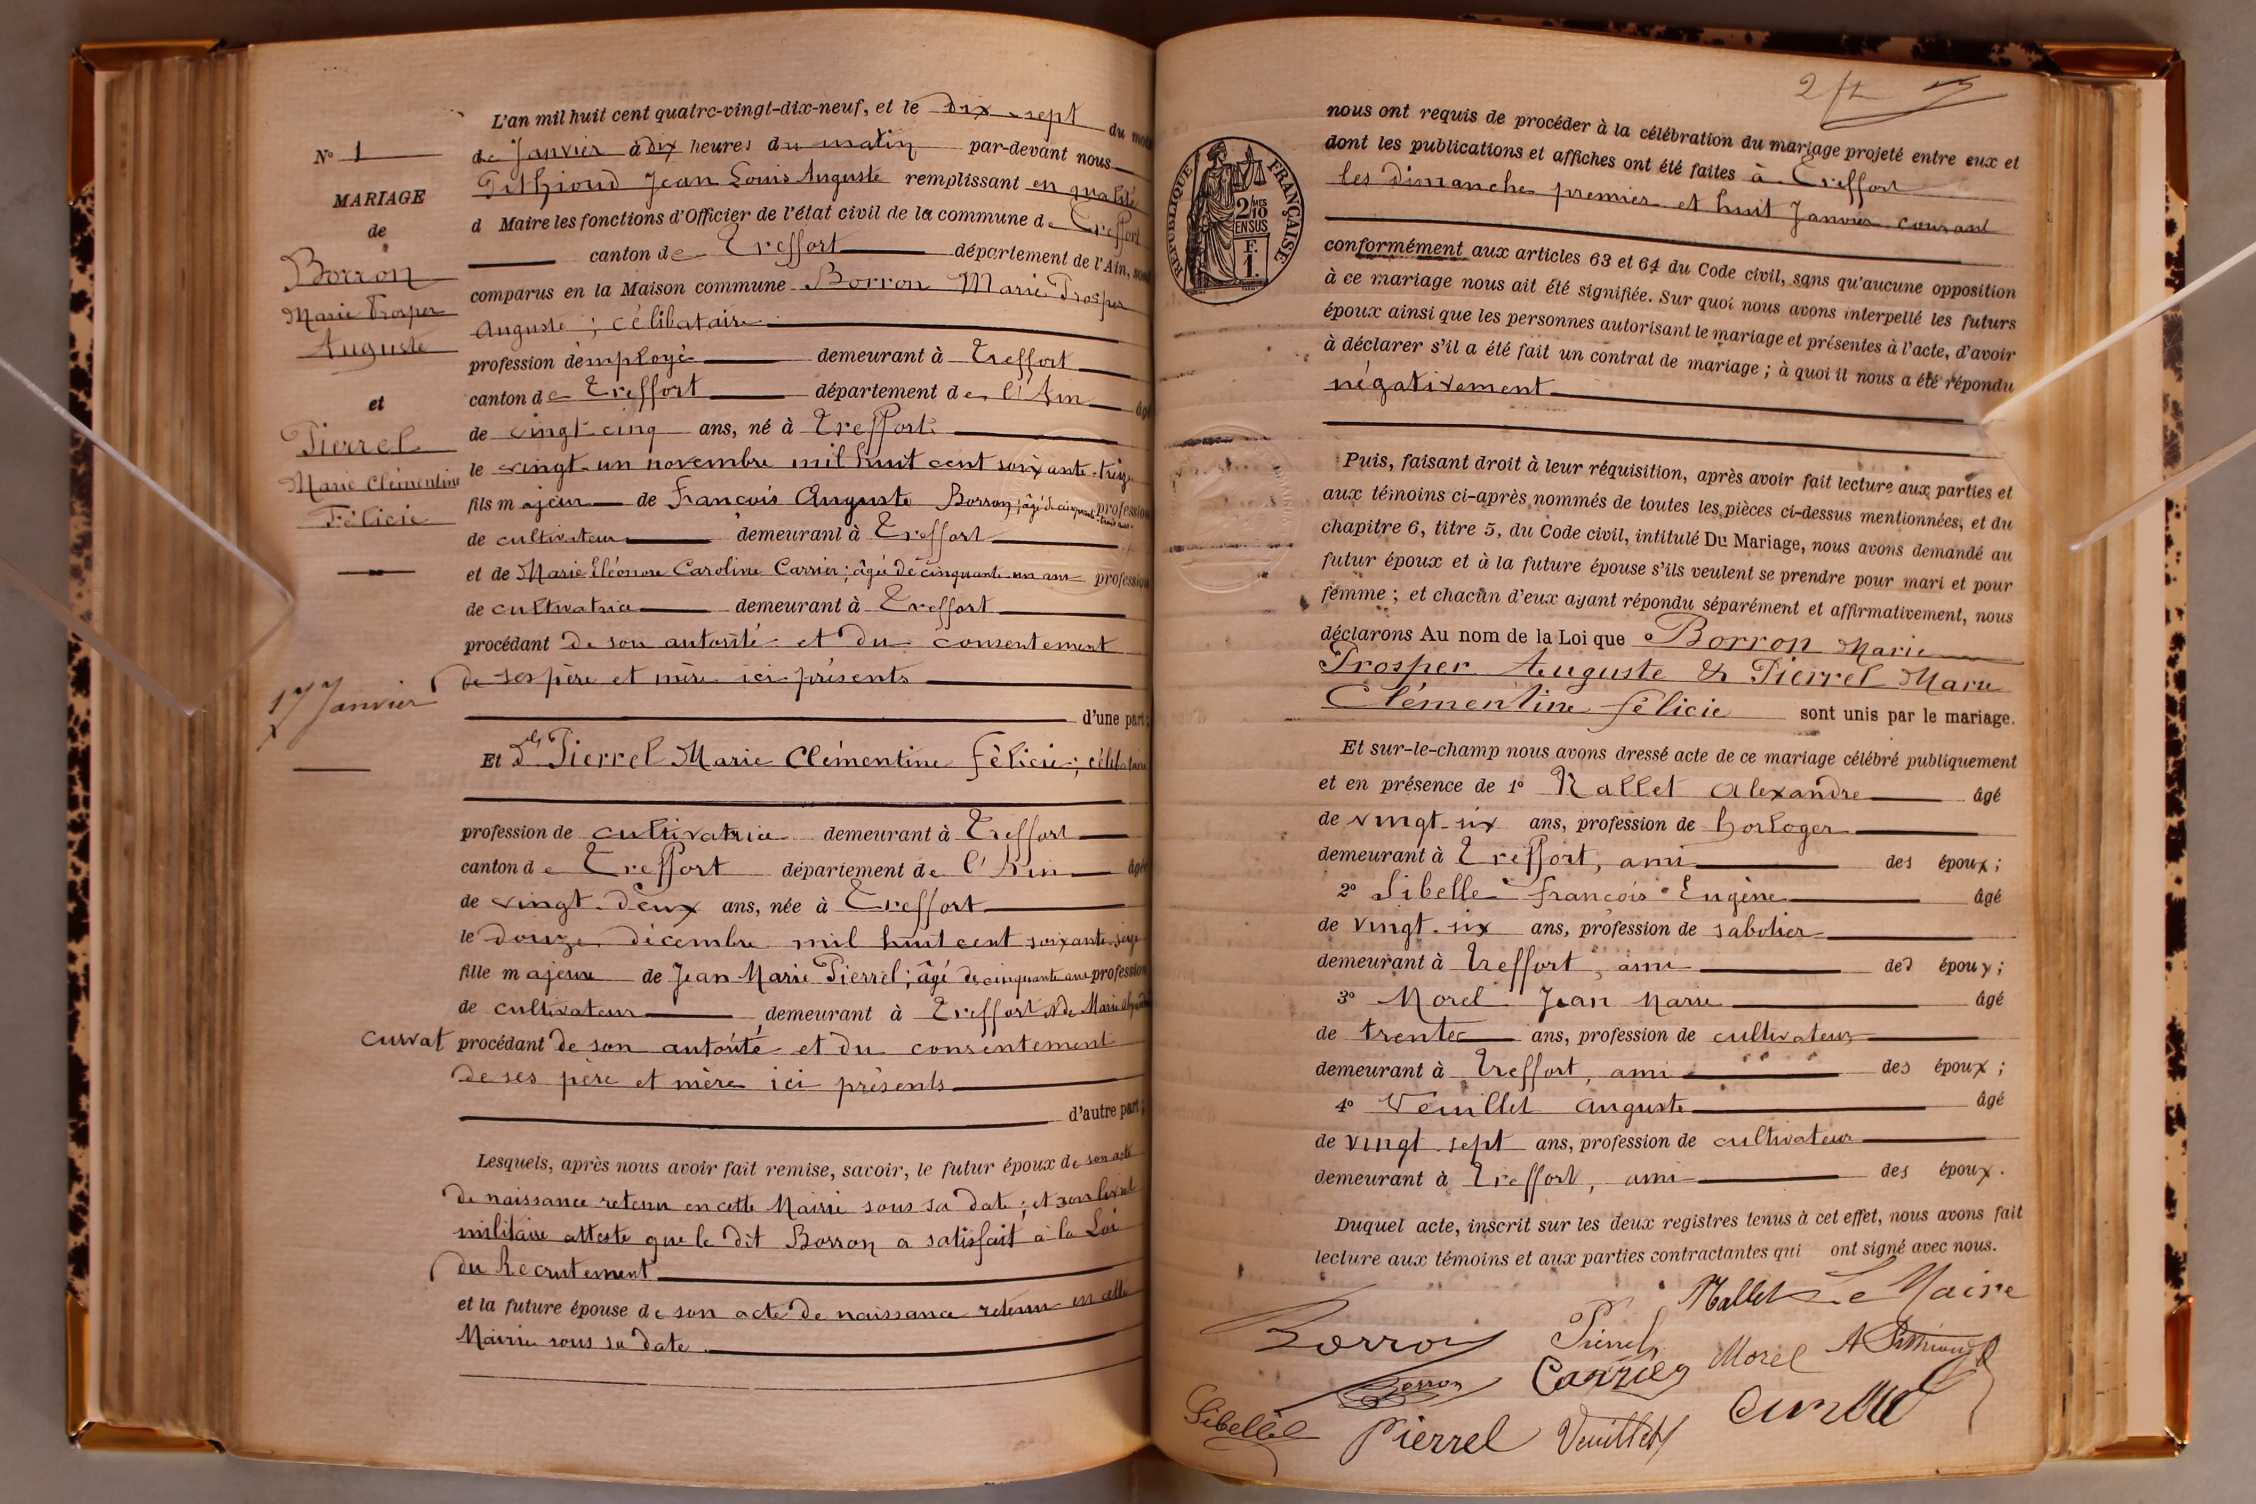 L'an mil huit cent quatre-vingt-dix-neuf, et le dix-sept du mois
N° 1
de Janvier à dix heures du matin par-devant nous
Pithioud Jean Louis Auguste remplissant en qualité
MARIAGE
d Maire les fonctions d'Officier de l'état civil de la commune de Treffort
de
canton de Treffort département de l'Ain, sont
Borron
comparus en la Maison commune Borron Marie Prosper
Marie Prosper
Auguste ; célibataire
Auguste
profession d'employé demeurant à Treffort
et
canton de Treffort département de l'Ain âgé
de vingt-cinq ans, né à Treffort
Pierrel
le vingt-un novembre mil huit cent soixante-treize
Marie Clémentine
fils majeur de François Auguste Borron ; âgé de cinquante profession
Félicie
de cultivateur demeurant à Treffort
et de Marie Eléonore Caroline Carrier ; âgée de cinquante-un ans profession
de cultivatrice demeurant à Treffort
procédant de son autorité et du consentement
17 Janvier
de ses père et mère ici présents
d'une part ;
Et Dlle Pierrel Marie Clémentine Félicie ; célibataire
profession de cultivatrice demeurant à Treffort
canton de Treffort département de l'Ain âgée
de vingt-deux ans, née à Treffort
le douze décembre mil huit cent soixante-seize
fille majeure de Jean Marie Pierrel ; âgé de cinquante ans profession
de cultivateur demeurant à Treffort & de Marie
Cuvat procédant de son autorité et du consentement
de ses père et mère ici présents
d'autre part ;
Lesquels, après nous avoir fait remise, savoir, le futur époux de son acte
de naissance retenu en cette Mairie sous sa date ; et son livret
militaire atteste que le dit Borron a satisfait à la Loi
du Recrutement
et la future épouse de son acte de naissance retenu en cette
Mairie sous sa date
2
nous ont requis de procéder à la célébration du mariage projeté entre eux et
dont les publications et affiches ont été faites à Treffort
les dimanches premier et huit Janvier courant
RÉPUBLIQUE FRANÇAISE
2 MES 10
EN SUS
F.
1.
conformément aux articles 63 et 64 du Code civil, sans qu'aucune opposition
à ce mariage nous ait été signifiée. Sur quoi nous avons interpellé les futurs
époux ainsi que les personnes autorisant le mariage et présentes à l'acte, d'avoir
à déclarer s'il a été fait un contrat de mariage ; à quoi il nous a été répondu
négativement
Puis, faisant droit à leur réquisition, après avoir fait lecture aux parties et
aux témoins ci-après nommés de toutes les pièces ci-dessus mentionnées, et du
chapitre 6, titre 5, du Code civil, intitulé Du Mariage, nous avons demandé au
futur époux et à la future épouse s'ils veulent se prendre pour mari et pour
femme ; et chacun d'eux ayant répondu séparément et affirmativement, nous
déclarons Au nom de la Loi que Borron Marie
Prosper Auguste & Pierrel Marie
Clémentine Félicie sont unis par le mariage.
Et sur-le-champ nous avons dressé acte de ce mariage célébré publiquement
et en présence de 1° Nallet Alexandre âgé
de vingt-six ans, profession de horloger
demeurant à Treffort, ami des époux ;
2° Sibelle François Eugène âgé
de vingt-six ans, profession de sabotier
demeurant à Treffort, ami des époux ;
3° Morel Jean Marie âgé
de trente ans, profession de cultivateur
demeurant à Treffort, ami des époux ;
4° Veuillet Auguste âgé
de vingt sept ans, profession de cultivateur
demeurant à Treffort, ami des époux.
Duquel acte, inscrit sur les deux registres tenus à cet effet, nous avons fait
lecture aux témoins et aux parties contractantes qui ont signé avec nous.
Nallet Le Maire
Borron Pierrel Morel A Pithioud
Borron Carrier
Sibelle Pierrel Veuillet